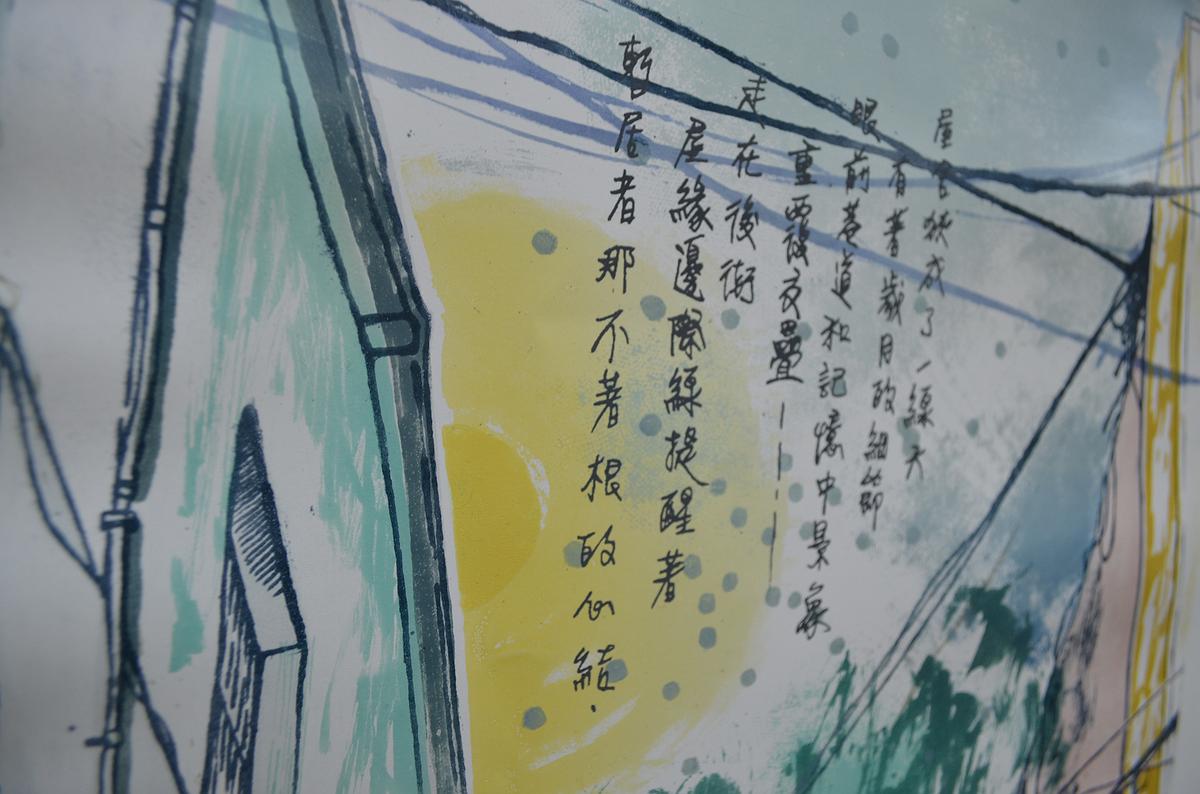 屋宇狹成了一線天
有著歲月的細節
眼前巷道和記憶中景象
重覆交疊————
走在後街
屋緣邊際線提醒著
暫居者那不著根的心結.